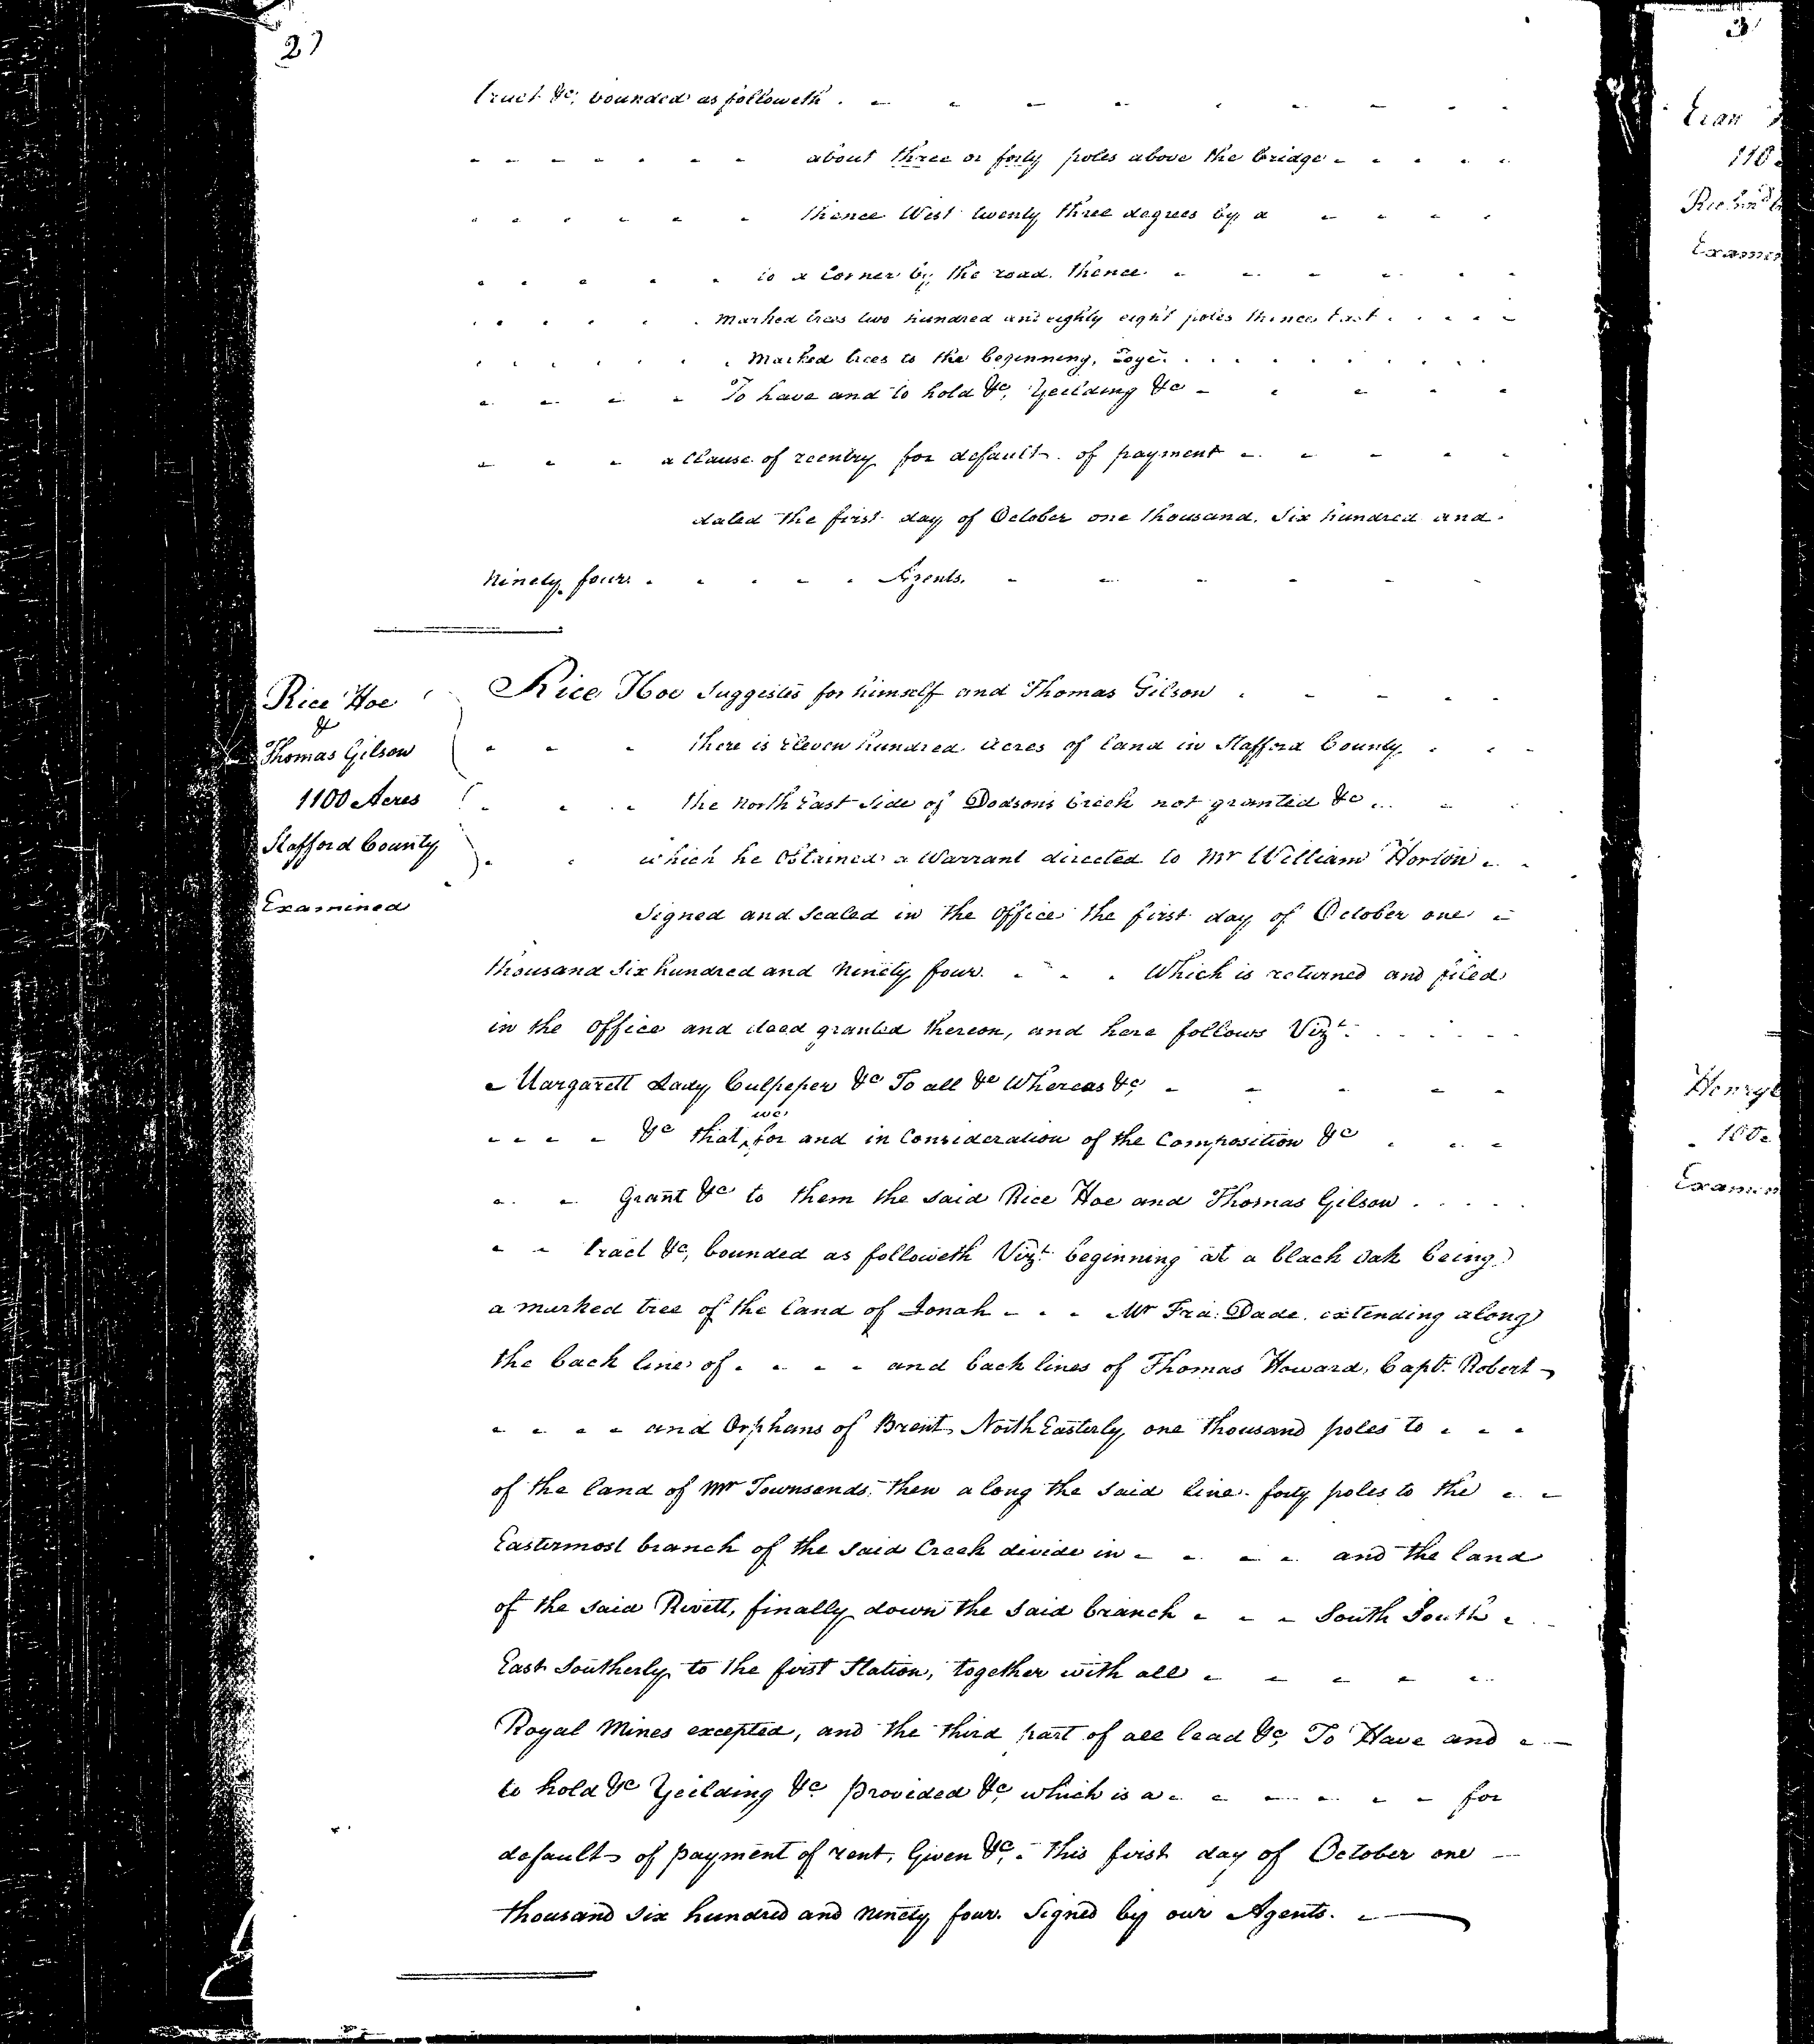 2)
tract &c, bounded as followeth . - - - - - - - - -
- - - - - - - about three or forty poles above the bridge - - - - -
- - - - - - thence West twenty three degrees by a - - - -
- - - - - to a Corner by the road. thence - - - - - -
- - - - - - Marked trees two hundred and eighty eight poles thence East - - - - -
- - - - - - - Marked trees to the beginning, Toge. . . . . . . . .
- - - - To have and to hold &c, Yeilding &c - - - - -
- - - a Clause of reentry for default of payment - - - - -
dated the first day of October one thousand, Six hundred and
Ninety four - - - - - Agents. - - - - - -
Rice Hoe
&
Thomas Gilson
1100 Acres
Stafford County
Examined
Rice Hoe Suggestes for himself and Thomas Gilson - - - - -
- - - there is Eleven hundred Acres of land in Stafford County - - -
- - - the North East Side of Dodsons Creek not granted &c - - -
- - which he Obtained a Warrant directed to Mr William Horton - -
Signed and Sealed in the Office the first day of October one -
thousand Six hundred and Ninety four. - - - Which is returned and filed
in the Office and deed granted thereon, and here follows Vizt. . . . . . .
- Margarett Lady Culpeper &c To all &c Whereas &c, - - - - -
- - - - &c that ^we for and in Consideration of the Composition &c - - -
- - Grant &c to them the said Rice Hoe and Thomas Gilson . . . . .
- - tract &c, bounded as followeth Vizt. beginning at a black Oak being
a marked tree of the land of Jonah - - - Mr Fra: Dade. extending along
the back line of - - - - and back lines of Thomas Howard, Capt. Robert -
- - - - and Orphans of Brent North Easterly one thousand poles to - - -
of the land of Mr Townsends, then along the said line forty poles to the - -
Eastermost branch of the said Creek divide in - - - - and the land
of the said Rivett, finally down the said branch - - - South South -
East Southerly to the first Station, together with all - - - - -
Royal Mines excepted, and the third part of all lead &c, To Have and -
to hold &c Yeilding &c. provided &c, which is a - - - - - - for
default of payment of rent, Given &c, - this first day of October one -
thousand Six hundred and Ninety four. Signed by our Agents. -
3
110
Examin
Henry
Examin